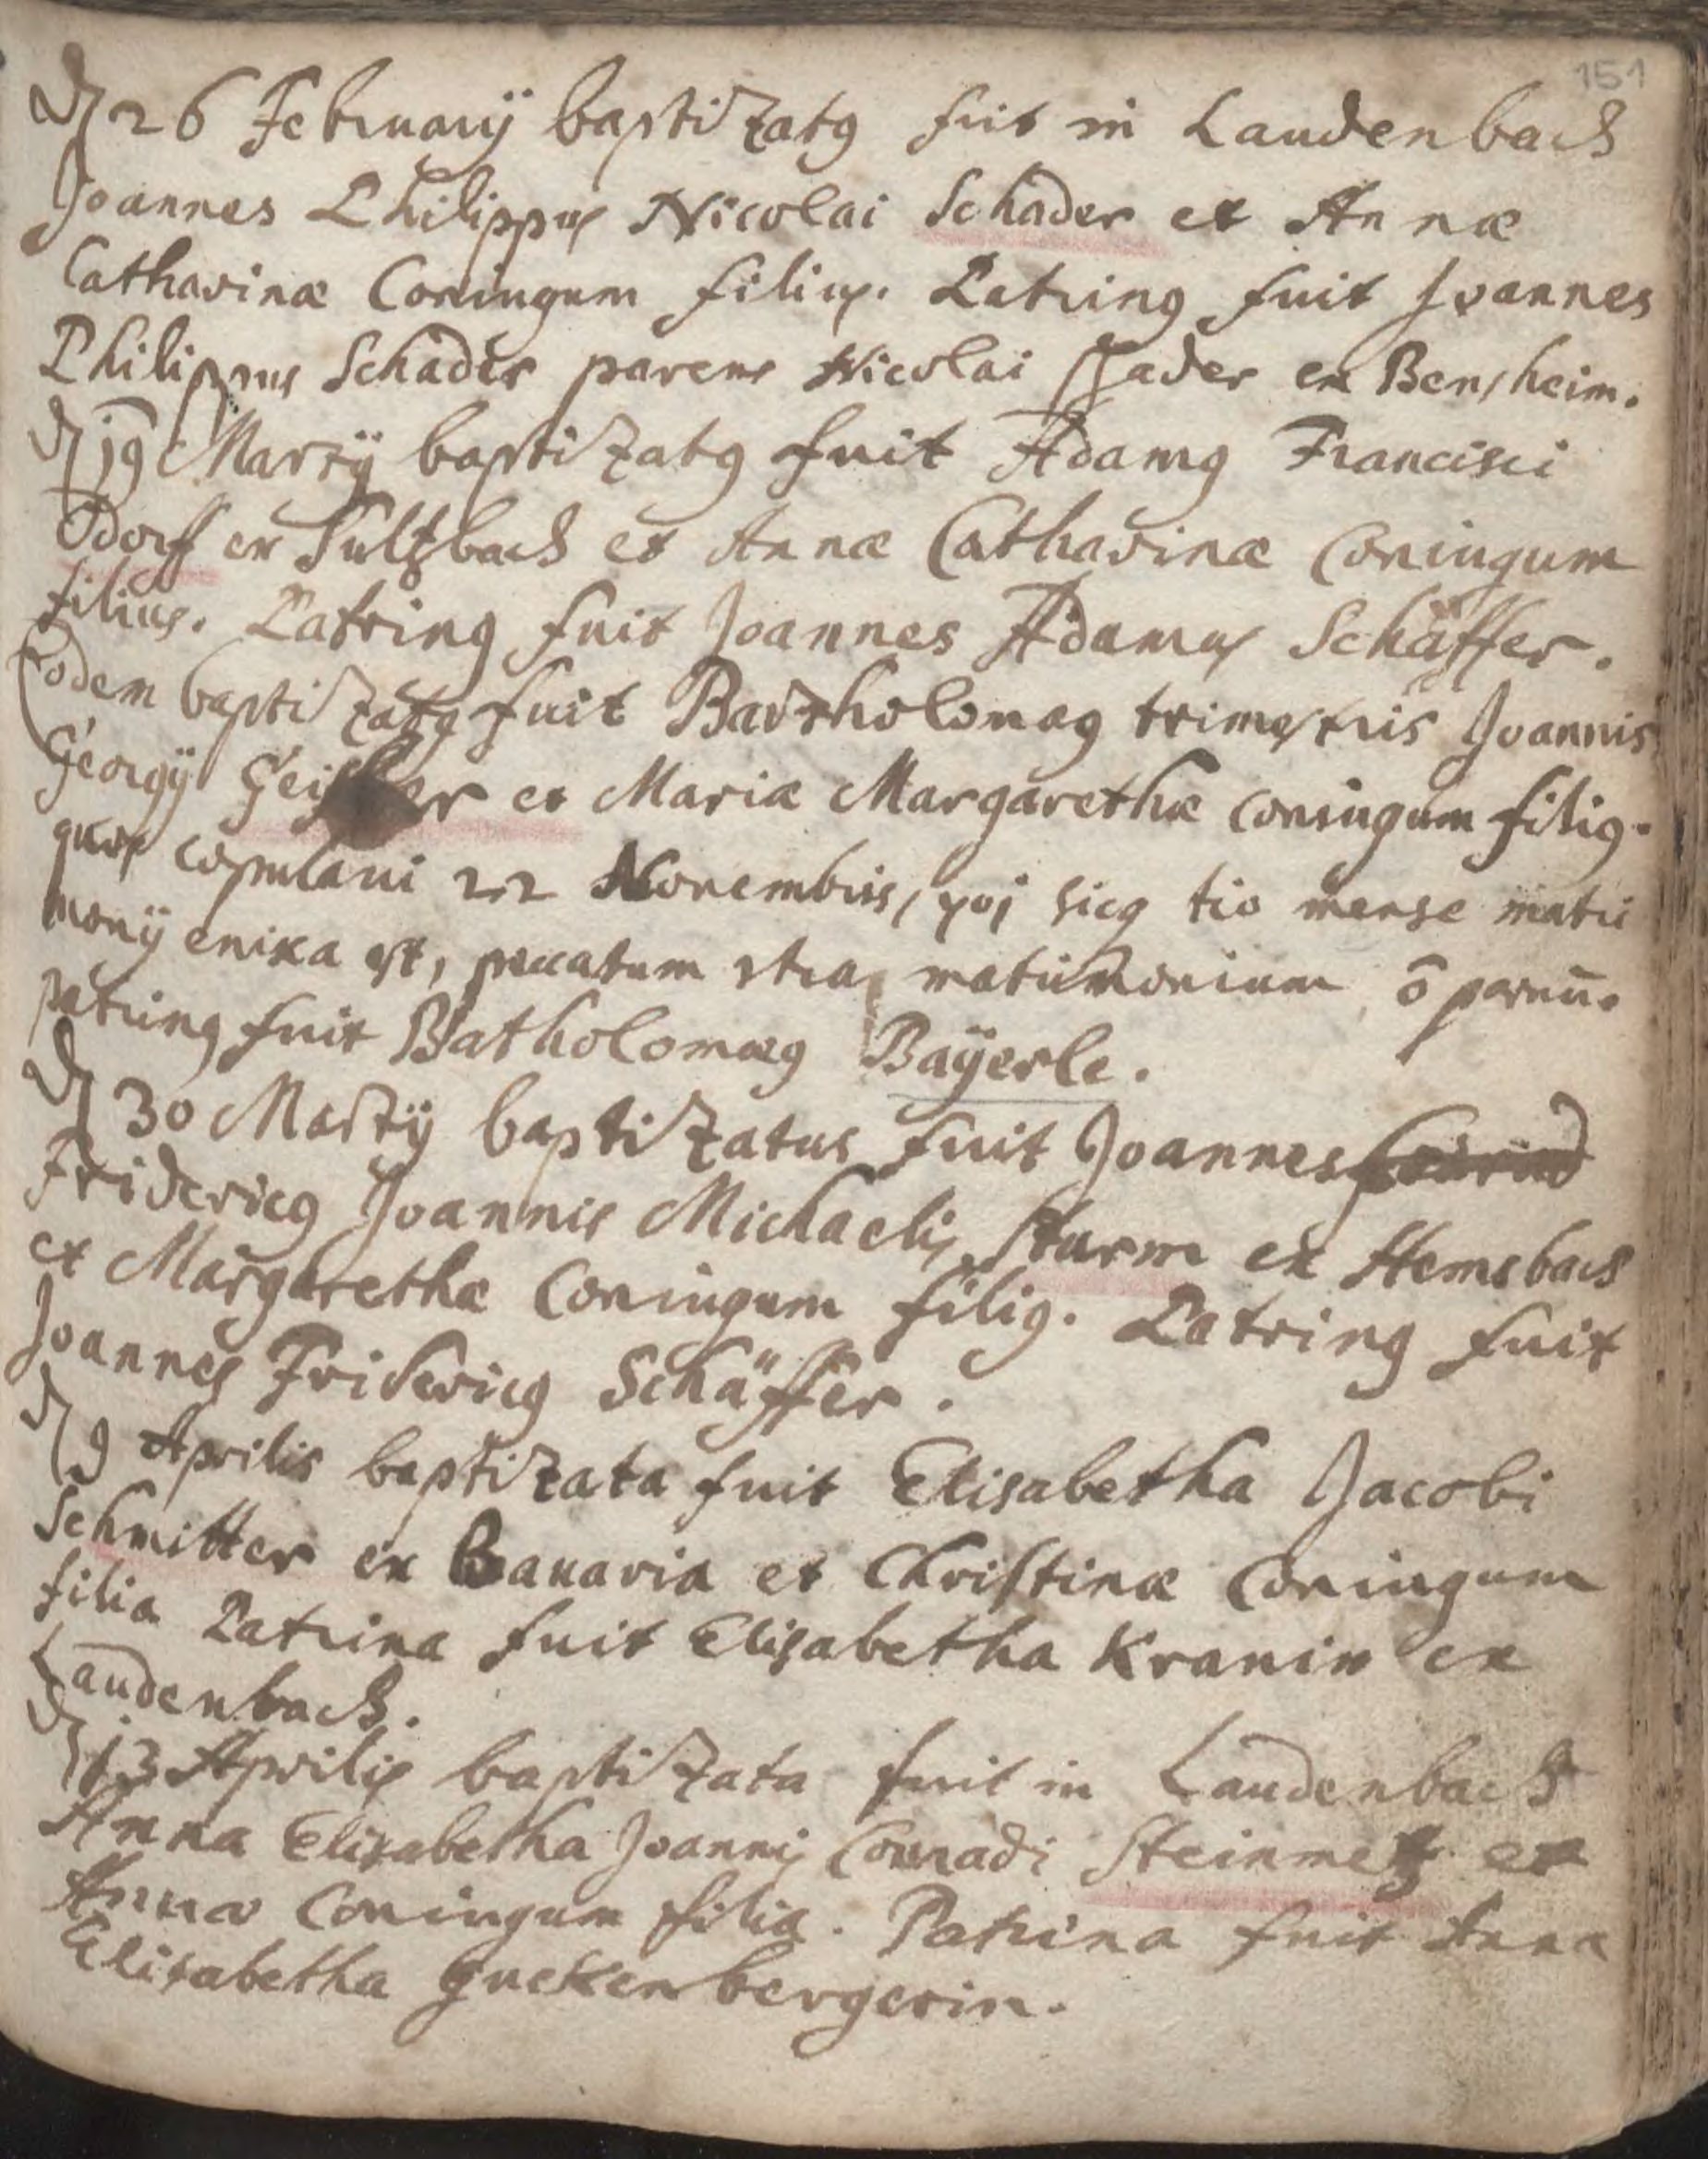 151
26 Februarÿ baptizatg fuit in Laudenbach
Joannes Philippus Nicolai Schader et Annæ
Catharinæ Coniugum filius. Patring fuit Joannes
Philippus Schader parens Nicolai Schader ex Bensheim.
19 Martÿ baptizatg fuit Adamg Francisci
Odorff ex Sultzbach et Annæ Catharinæ Coniugum
filius. Patring fuit Joannes Adamus Schäffer.
Eodem baptizatg fuit Bartholomæg trimestris Joannis
Georgÿ et Mariæ Margarethæ coniugum filig.
quos copulavi 22 Novembris, tio mense matri
monÿ enixa est, peccatum matrimonium õ parvũ.
patring fuit Batholomæg Baÿerle.
30 Martÿ baptizatus fuit Joannes
Fridericg Joannis Michaelis Sturm ex Hemsbach
et Margarethæ Coniugum filig. Patring fuit
Joannes Fridericg Schäffer.
9 Aprilis baptizata fuit Elisabetha Jacobi
Schmitter ex Bavaria et Christinæ Coniugum
filia Patrina fuit Elisabetha Kranin ex
Laudenbach.
13 Aprilis baptizata fuit in Laudenbach
Anna Elisabetha Joannis Conradi Steinmetz et
Annæ Coniugum filia. Patrina fuit Anna
Elisabetha